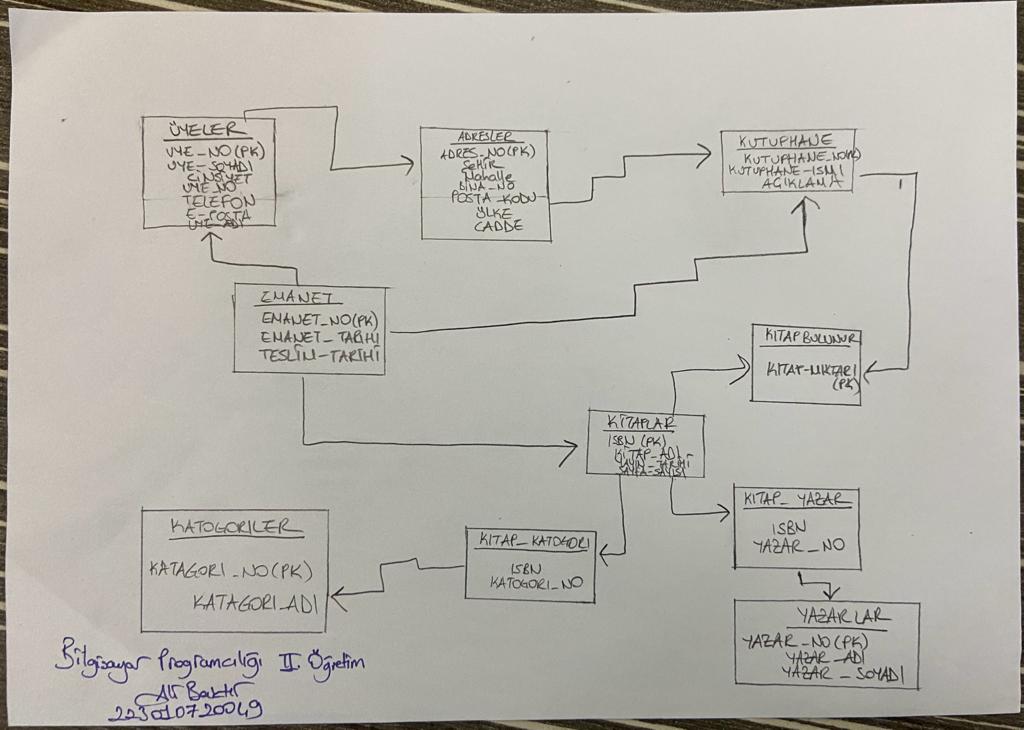 ÜYELER
UYE_NO(PK)
UYE-SOYADI
CiNSiYET
UYE_NO
TELEFON
E-POSTA
UYE-ADI
ADRESLER
ADRES_NO(PK)
ŞEHİR
Mahalle
BİNA_NO
POSTA_KODU
ÜLKE
CADDE
KUTUPHANE
KUTUPHANE_NO(PK)
KUTUPHANE-ISMI
AÇIKLAMA
EMANET
EMANET_NO(PK)
EMANET_TARİHİ
TESLİM-TARİHİ
KITAP BULUNUR
KİTAP-MIKTARI
(PK)
KİTAPLAR
ISBN (PK)
KİTAP_ADI
YAYIN-TARİHİ
SAYFA-SAYISI
KITAP_YAZAR
ISBN
YAZAR_NO
KITAP_KATOGORI
ISBN
KATOGORI_NO
KATOGORILER
KATAGORI_NO(PK)
KATAGORI_ADI
YAZARLAR
YAZAR_NO(PK)
YAZAR_ADI
YAZAR_SOYADI
Bilgisayar Programcılığı II. Öğretim
Ali Baktır
22301072049